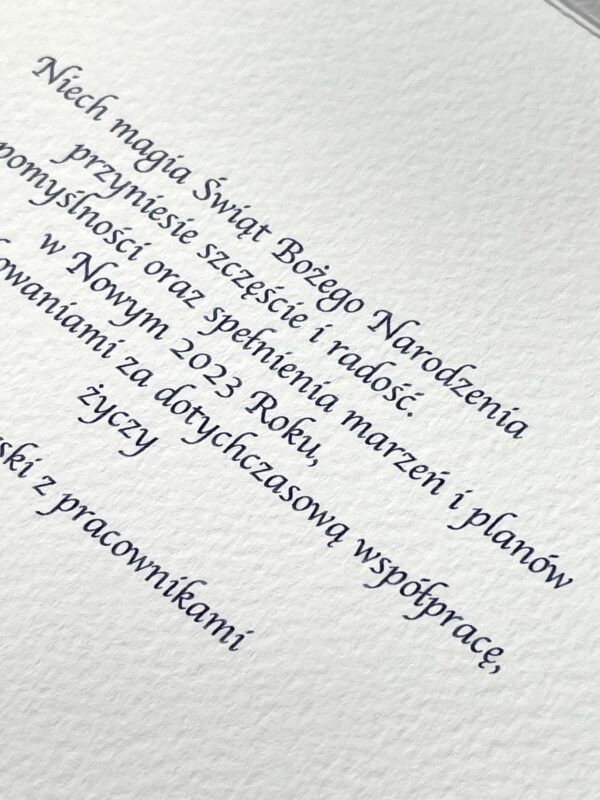 Niech magia Świąt Bożego Narodzenia
przyniesie szczęście i radość.
pomyślności oraz spełnienia marzeń i planów
w Nowym 2023 Roku,
za dotychczasową współpracę,
życzy
z pracownikami